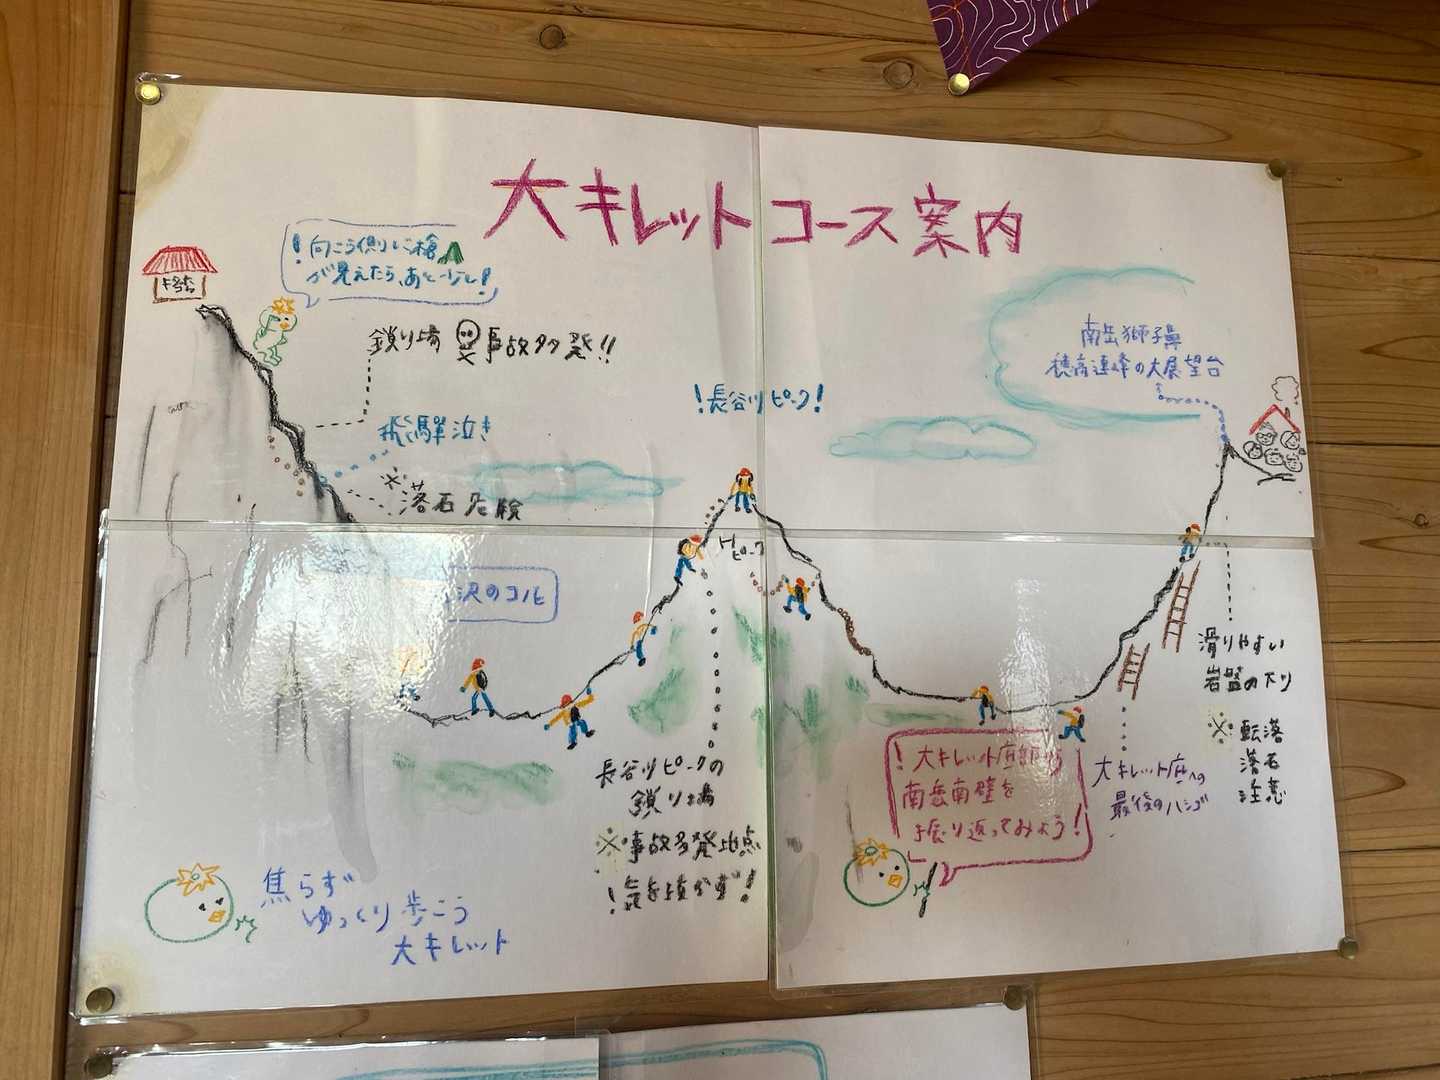 大キレットコース案内
！向こう側に槍
が見えたら、あと一少し！
鎖り場 事故多発!!
飛騨泣き
※落石危険
沢のコル
！長谷川ピーク！
Hピーク
南岳獅子鼻
穂高連峰の大展望台
長谷川ピークの
鎖り場
※事故多発地点
！気を抜かず！
！大キレット底部から
南岳南壁を
振り返ってみよう！
大キレット底への
最後のハシゴ
滑りやすい
岩盤の下り
※転落
落石
注意
焦らず
ゆっくり歩こう
大キレット